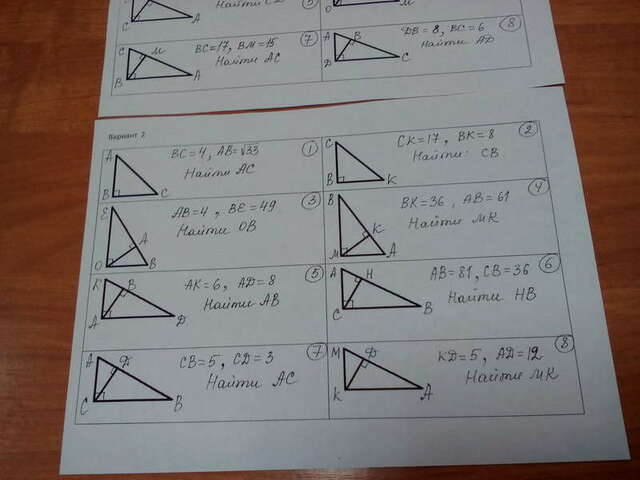 Найти CD
C A
M
C M B A
BC=17, BM=15
Найти AC
7
A B D C
DB=8, BC=6
Найти AD
8
Вариант 2
A B C
BC=4, AB=√33
Найти AC
1
C B K
CK=17, BK=8
Найти: CB
2
E A O B
AB=4, BE=49
Найти OB
3
B K M A
BK=36, AB=61
Найти MK
4
K B A D
AK=6, AD=8
Найти AB
5
A H C B
AB=81, CB=36
Найти HB
6
A D C B
CB=5, CD=3
Найти AC
7
M D K A
KD=5, AD=12
Найти MK
8